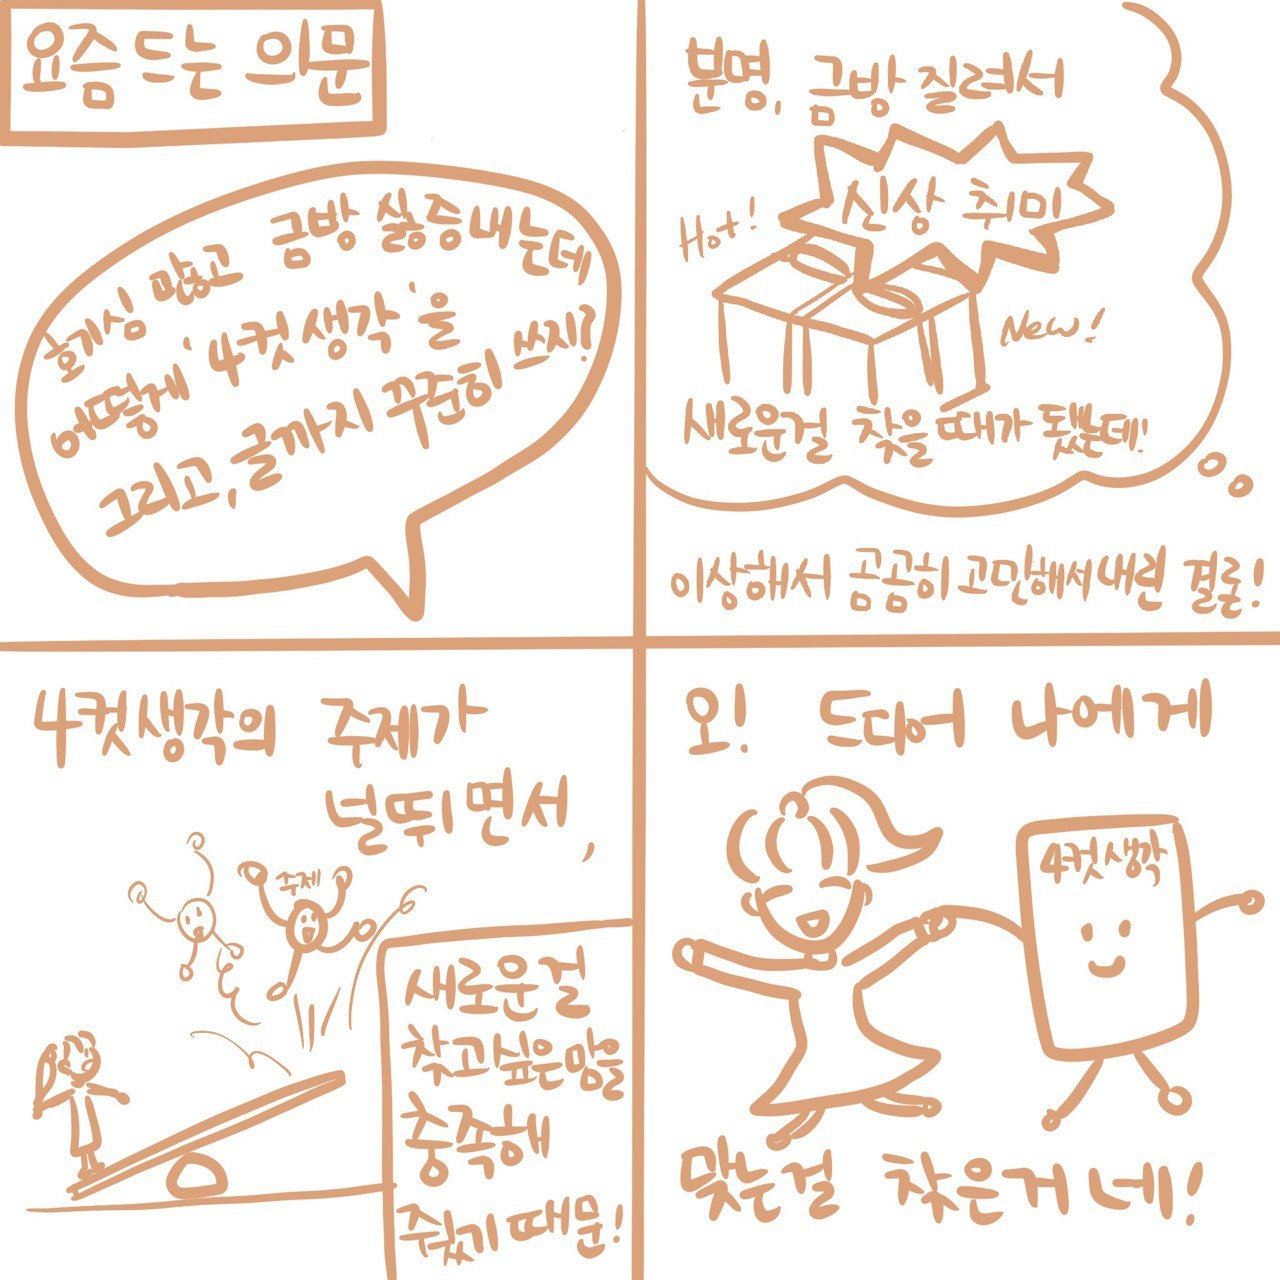 요즘 드는 의문
호기심 많고 금방 싫증내는데
어떻게 '4컷 생각'을
그리고, 글까지 꾸준히 쓰지?
분명, 금방 질려서
신상 취미
Hot!
New!
새로운걸 찾을 때가 됐는데!
이상해서 곰곰히 고민해서 내린 결론!
4컷생각의 주제가
널뛰면서,
주제
새로운걸
찾고싶은맘을
충족해
줬기 때문!
오! 드디어 나에게
4컷생각
맞는걸 찾은거네!